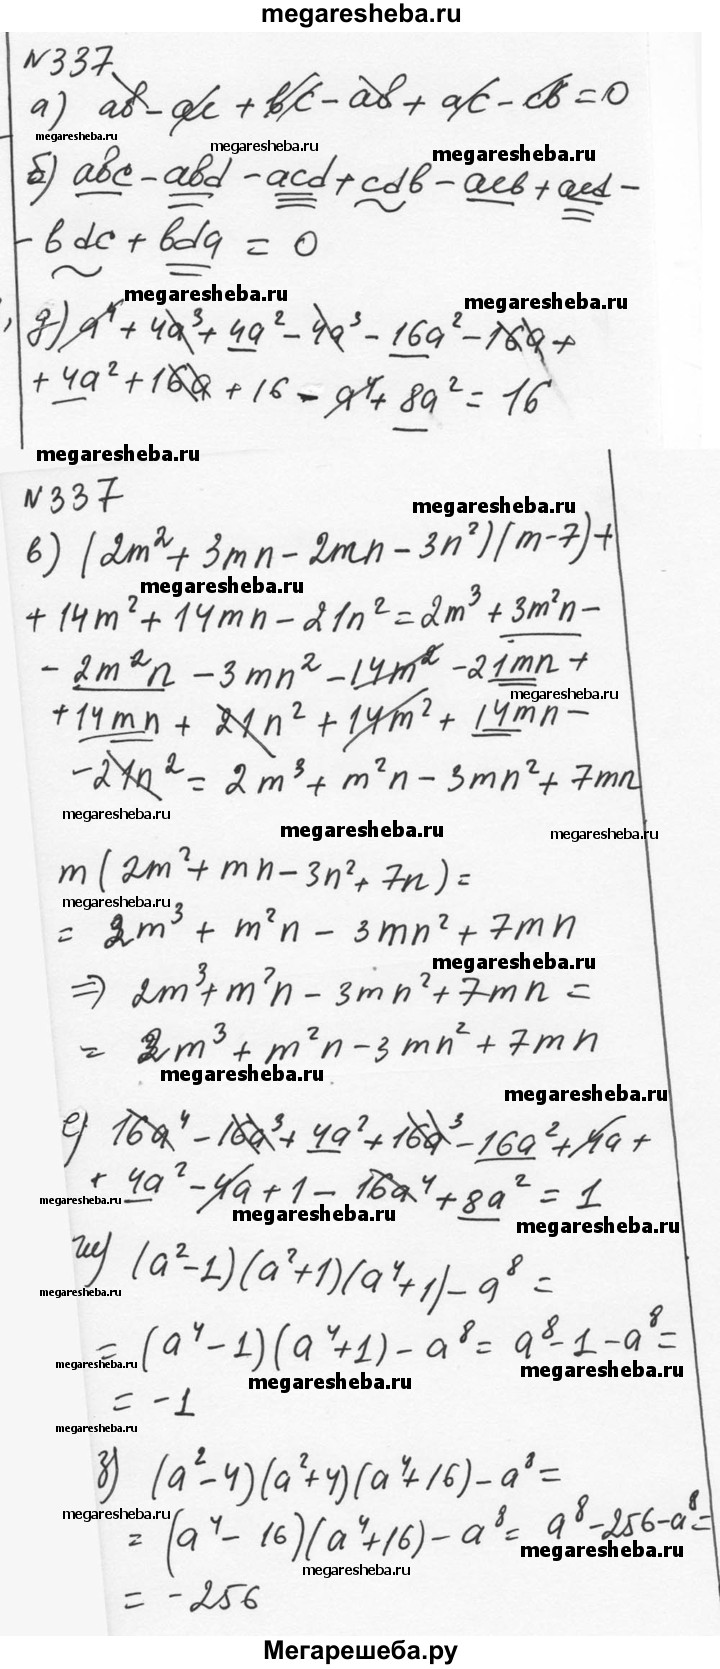 megaresheba.ru
№337
а) ab - ac + bc - ab + ac - cb = 0
megaresheba.ru
megaresheba.ru
megaresheba.ru
б) abc - abd - acd + cdb - acb + acd -
- bdc + bda = 0
megaresheba.ru
megaresheba.ru
д) a⁴ + 4a³ + 4a² - 4a³ - 16a² - 16a +
+ 4a² + 16a + 16 - a⁴ + 8a² = 16
megaresheba.ru
№337
megaresheba.ru
в) (2m² + 3mn - 2mn - 3n²)(m - 7) +
megaresheba.ru
+ 14m² + 14mn - 21n² = 2m³ + 3m²n -
- 2m²n - 3mn² - 14m² - 21mn +
megaresheba.ru
+ 14mn + 21n² + 14m² + 14mn -
- 21n² = 2m³ + m²n - 3mn² + 7mn
megaresheba.ru
megaresheba.ru
megaresheba.ru
m(2m² + mn - 3n² + 7n) =
megaresheba.ru
= 2m³ + m²n - 3mn² + 7mn
megaresheba.ru
⇒ 2m³ + m²n - 3mn² + 7mn =
= 2m³ + m²n - 3mn² + 7mn
megaresheba.ru
megaresheba.ru
е) 16a⁴ - 16a³ + 4a² + 16a³ - 16a² + 4a +
+ 4a² - 4a + 1 - 16a⁴ + 8a² = 1
megaresheba.ru
megaresheba.ru
megaresheba.ru
ж) (a² - 1)(a² + 1)(a⁴ + 1) - a⁸ =
megaresheba.ru
= (a⁴ - 1)(a⁴ + 1) - a⁸ = a⁸ - 1 - a⁸ =
megaresheba.ru
megaresheba.ru
megaresheba.ru
= -1
megaresheba.ru
з) (a² - 4)(a² + 4)(a⁴ + 16) - a⁸ =
megaresheba.ru
= (a⁴ - 16)(a⁴ + 16) - a⁸ = a⁸ - 256 - a⁸ =
megaresheba.ru
megaresheba.ru
= -256
Мегарешеба.ру